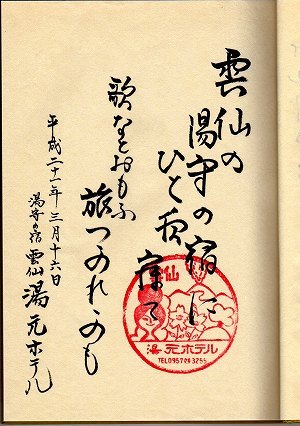 雲仙の
湯守の宿に
ひと夜寝て
歌なとおもふ
旅つかれかも
平成二十一年三月十六日
湯守の宿 雲仙湯元ホテル
仙
湯元ホテル